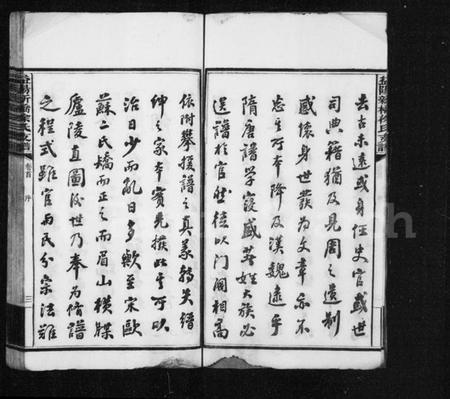 去古未遠或身任史官或世
司典籍猶及見周之遺制
感懷身世發為文章亦不
忘之乎降及漢魏逮乎
隋唐譜學寖盛華姓大族必
選譜於官然徒以門閥相高
依附攀援譜之真義弱矣縉
紳之家本實先撥以至
治日少而亂日多歟至宋歐
蘇二氏矯而正之而眉山橫牒
廬陵直圖後世乃奉為脩譜
之程式雖官與民分宗法雖
卷首 序
三